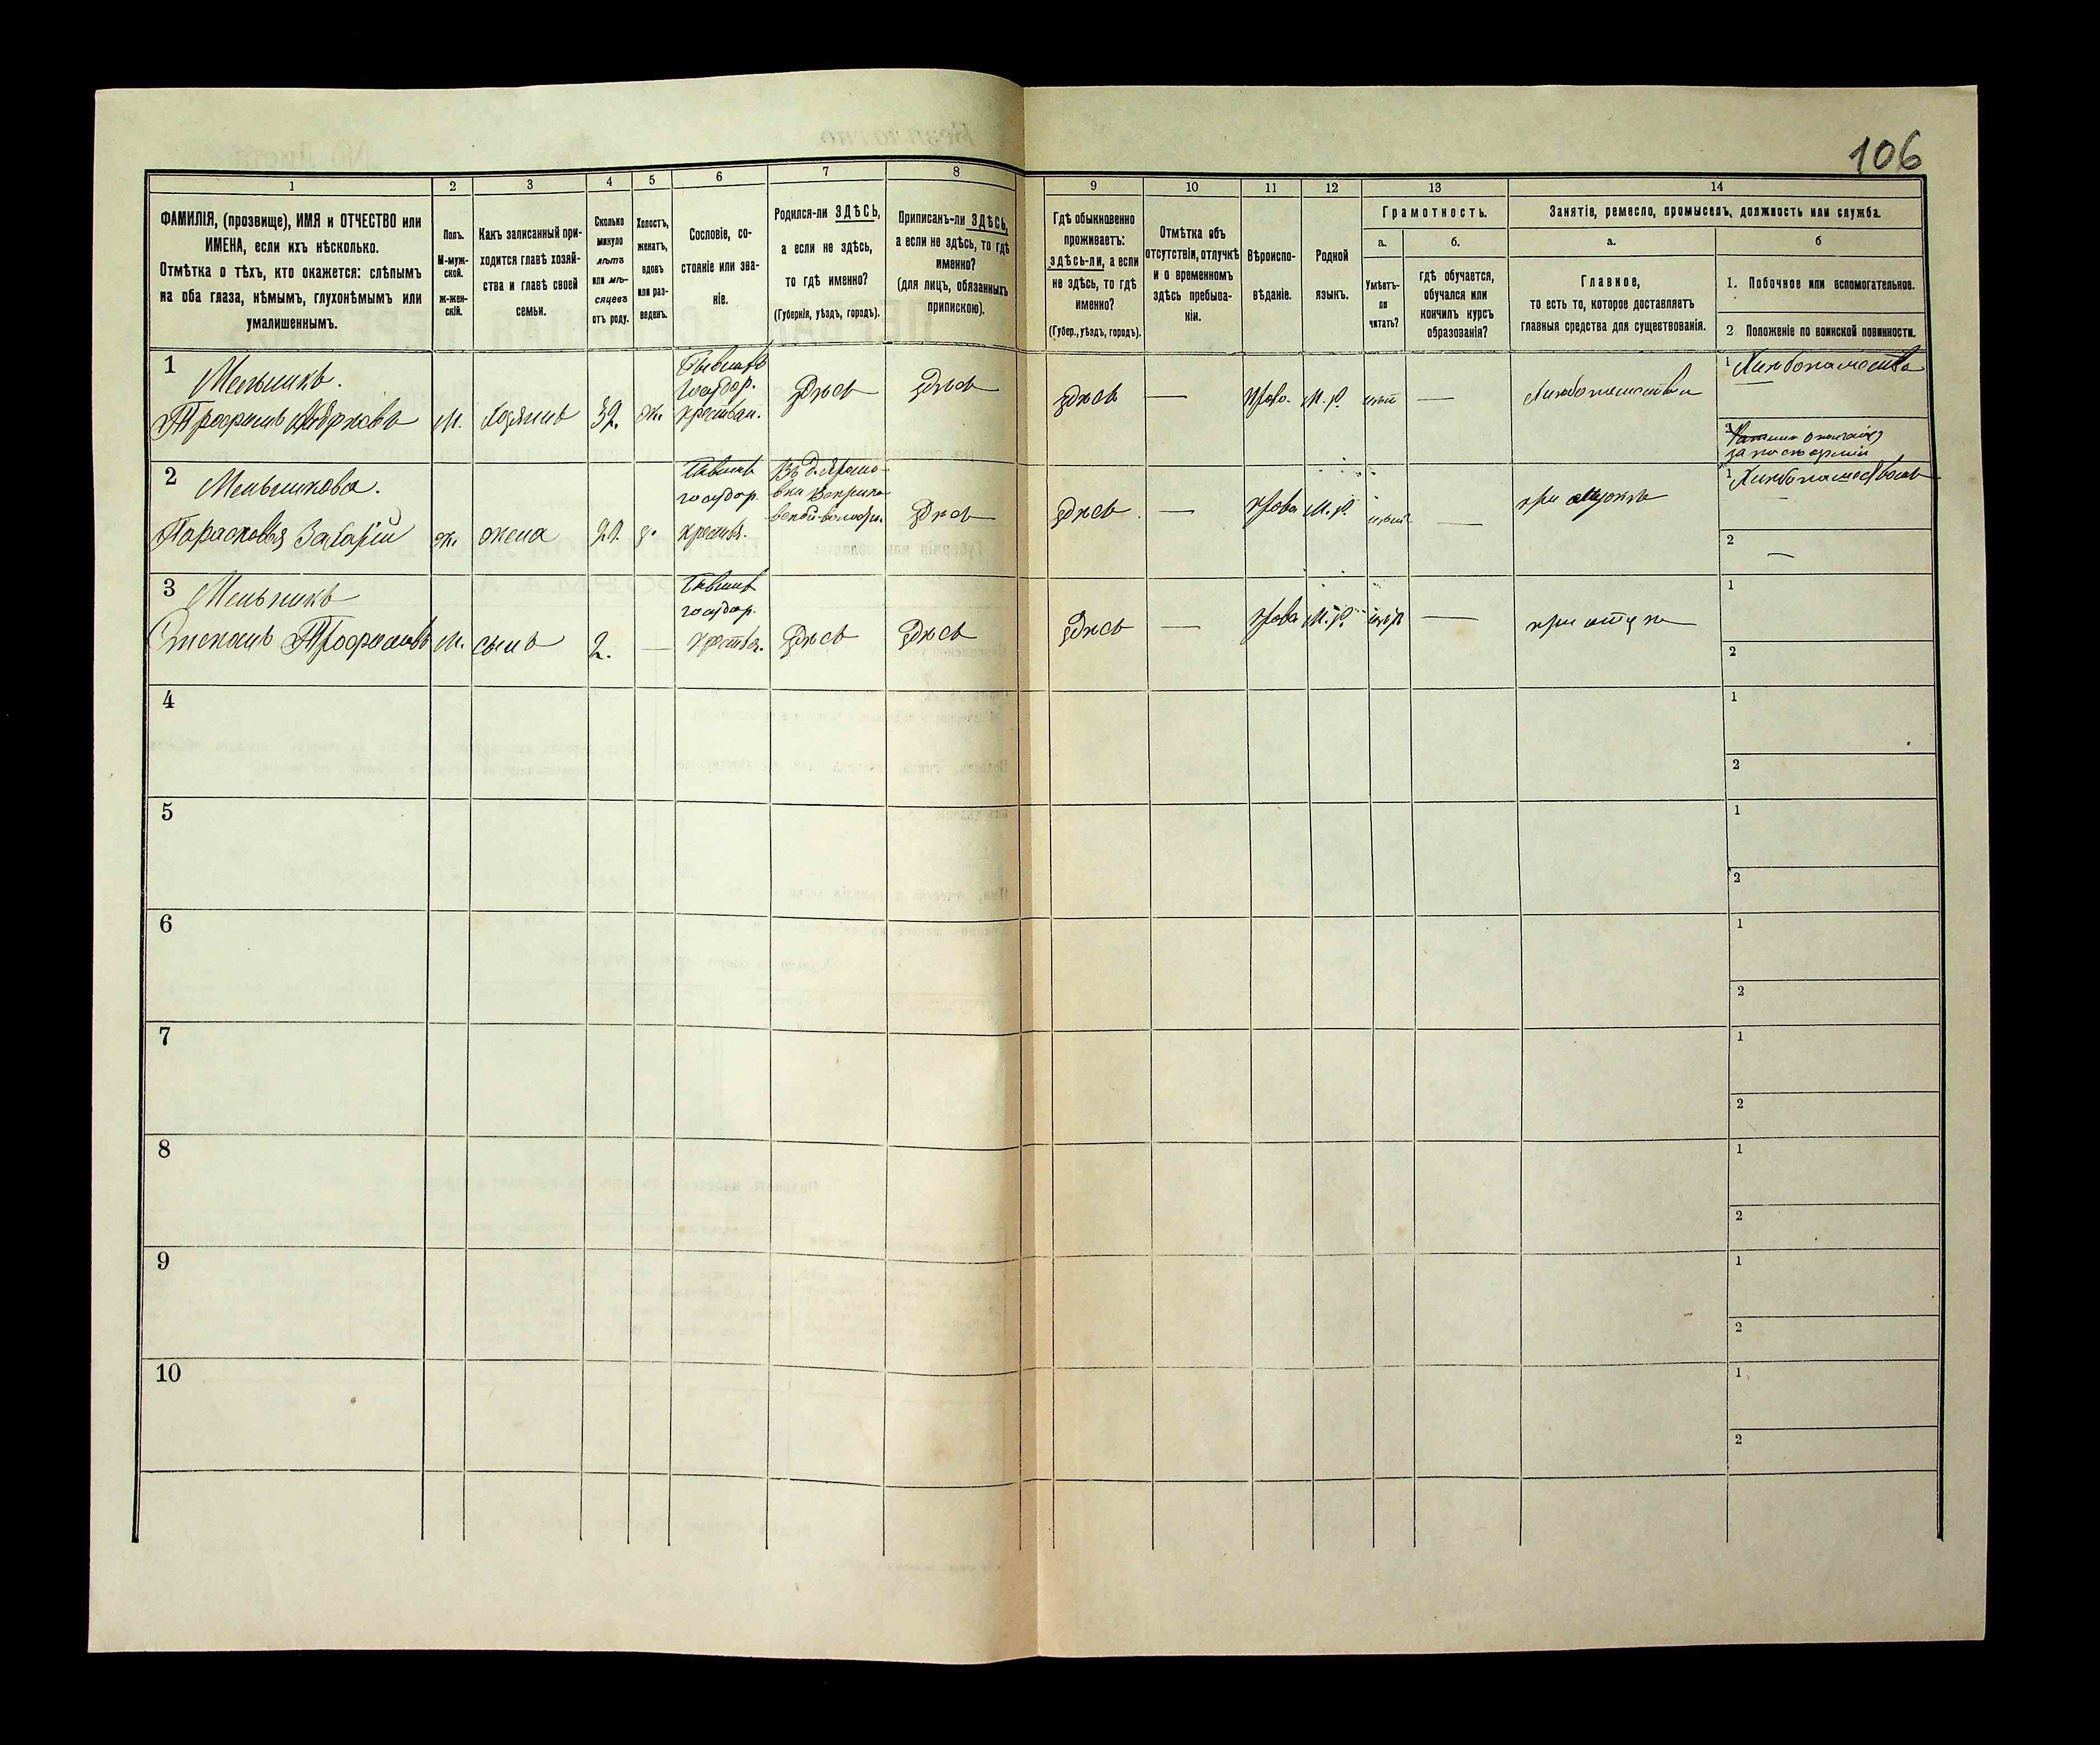 106
1
2
3
4
5
6
7
8
9
10
11
12
13
14
ФАМИЛІЯ, (прозвище), ИМЯ и ОТЧЕСТВО или
ИМЕНА, если ихъ нѣсколько.
Отмѣтка о тѣхъ, кто окажется: слѣпымъ
на оба глаза, нѣмымъ, глухонѣмымъ или
умалишеннымъ.
Полъ.
М-муж-
ской.
ж-жен-
скій.
Какъ записанный при-
ходится главѣ хозяй-
ства и главѣ своей
семьи.
Сколько
минуло
лѣтъ
или мѣ-
сяцевъ
отъ роду.
Холостъ,
женатъ,
вдовъ
или раз-
веденъ.
Сословіе, со-
стояніе или зва-
ніе.
Родился-ли ЗДѢСЬ,
а если не здѣсь,
то гдѣ именно?
(Губернія, уѣздъ, городъ).
Приписанъ-ли ЗДѢСЬ,
а если не здѣсь, то гдѣ
именно?
(для лицъ, обязанныхъ
припискою).
Гдѣ обыкновенно
проживаетъ:
здѣсь-ли, а если
не здѣсь, то гдѣ
именно?
(Губер., уѣздъ, городъ).
Отмѣтка объ
отсутствіи, отлучкѣ
и о временномъ
здѣсь пребыва-
ніи.
Вѣроиспо-
вѣданіе.
Родной
языкъ.
Грамотность.
а.
Умѣетъ-
ли
читать?
б.
гдѣ обучается,
обучался или
кончилъ курсъ
образованія?
Занятіе, ремесло, промыселъ, должность или служба.
а.
Главное,
то есть то, которое доставляетъ
главныя средства для существованія.
б
1. Побочное или вспомогательное.
2 Положеніе по воинской повинности.
1
Мельникъ.
Трофимъ
М.
Хозяинъ
ж.
Бывшій
госудор.
крестьян.
здѣсь
здѣсь
здѣсь
—
Право.
М. р.
нѣт
—
Хлѣбопашество
1 Хлѣбопашество
2
2
Мельникова.
Парасковья Захарій
ж.
жена
Бывшій
госудор.
крестья.
здѣсь
здѣсь
—
Права
М. р.
—
при мужѣ
1 Хлѣбопашество
2
—
3
Мельникъ
Трофимовъ
М.
сынъ
2.
—
Бывшій
госудор.
крестья.
здѣсь
здѣсь
здѣсь
—
Права
М. р.
—
при отцѣ
1
2
4
1
2
5
1
2
6
1
2
7
1
2
8
1
2
9
1
2
10
1
2